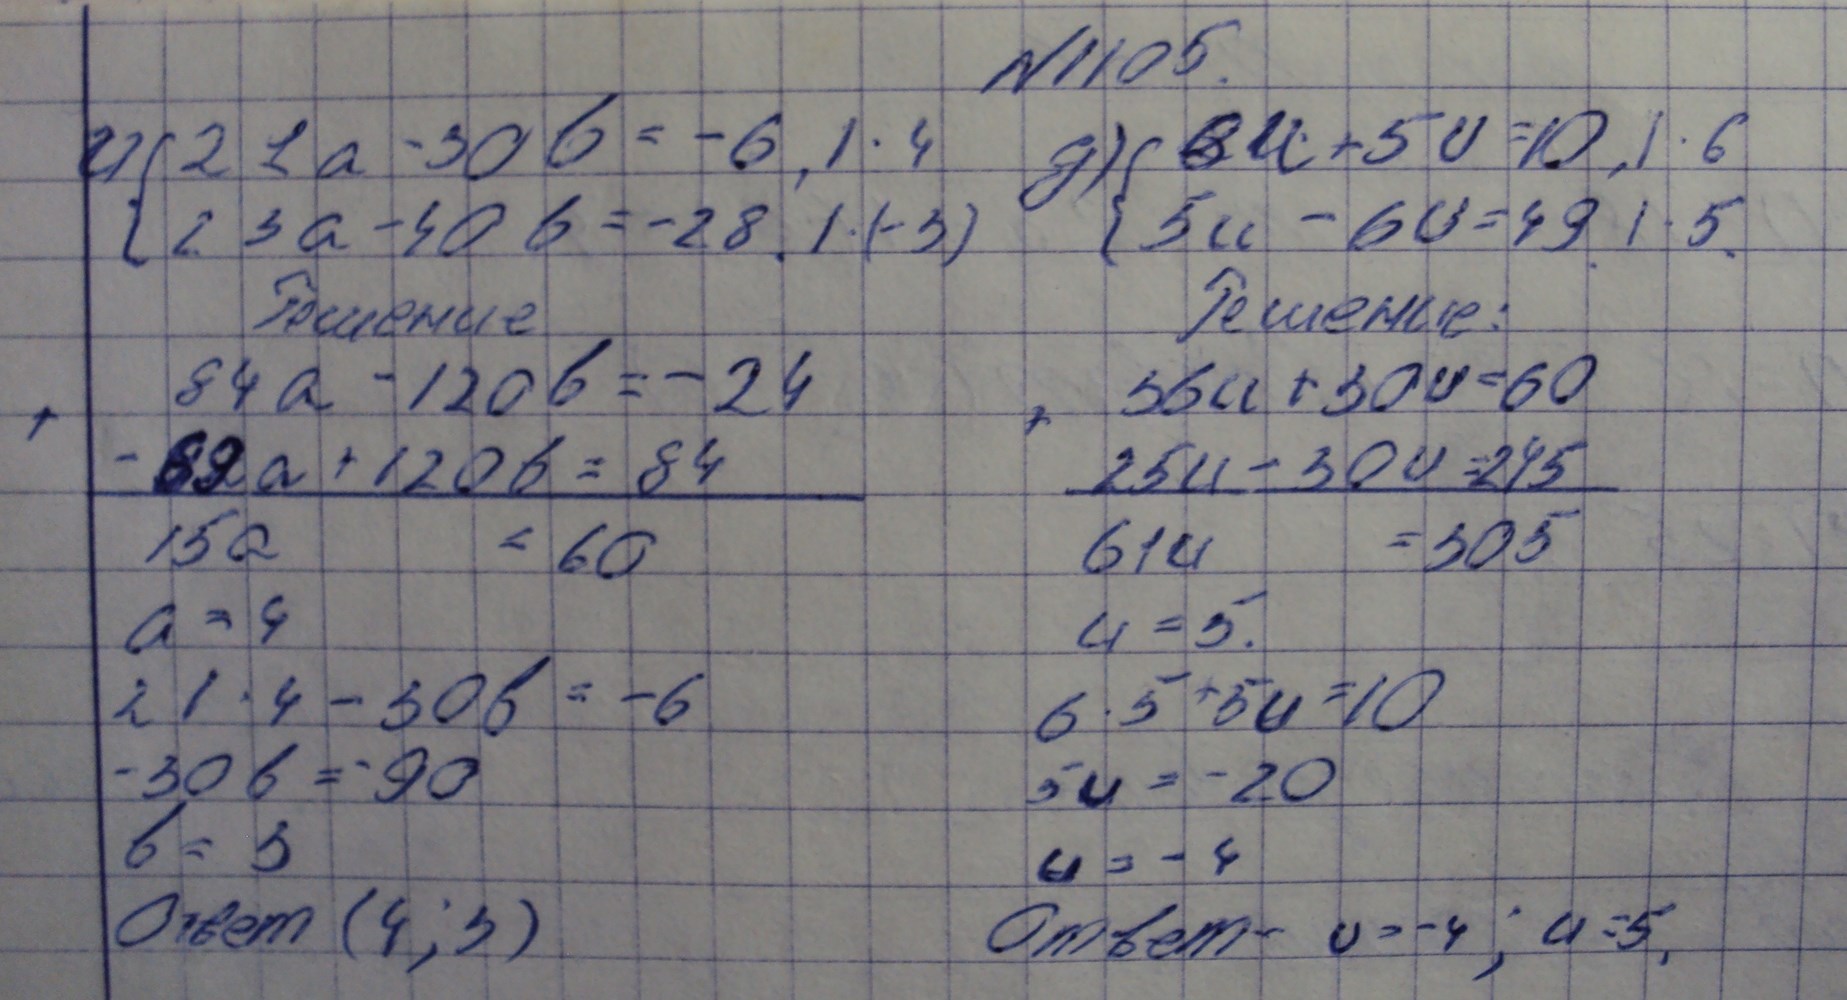 N1105.
и) { 21a - 30b = -6, | · 4
23a - 40b = -28, | · (-3)
Решение
84a - 120b = -24
+
- 69a + 120b = 84
15a = 60
a = 4
21 · 4 - 30b = -6
-30b = -90
b = 3
Ответ (4; 3)
д) { 6u + 5v = 10, | · 6
5u - 6v = 49, | · 5.
Решение:
36u + 30v = 60
+
25u - 30v = 245
61u = 305
u = 5.
6 · 5 + 5u = 10
5u = -20
u = -4
Ответ - v = -4; u = 5,